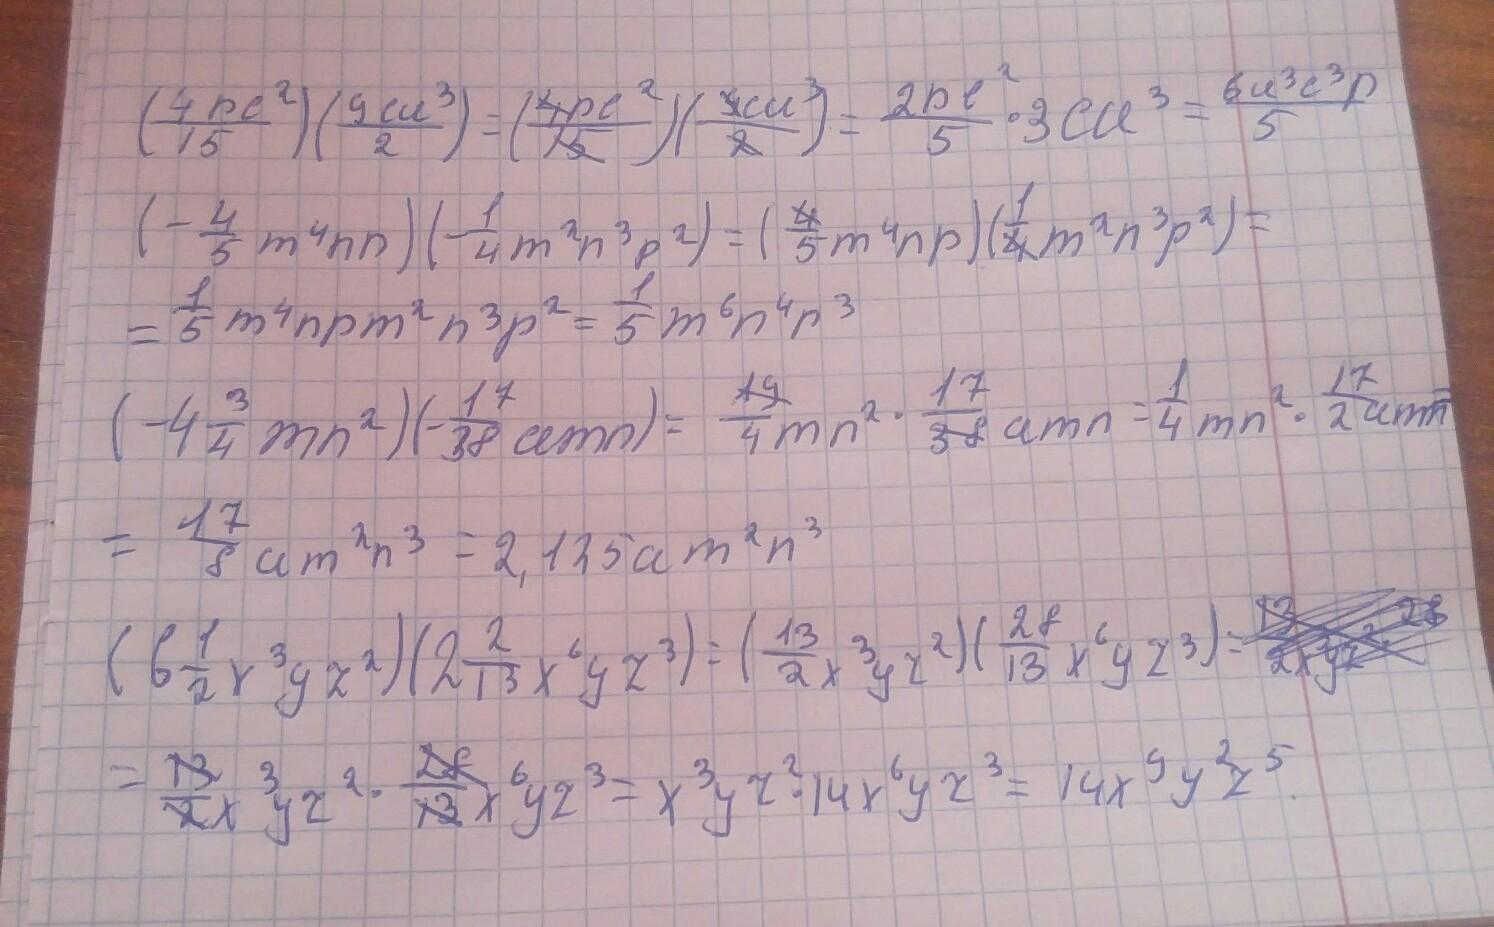 (4pc²/15)(9ca³/2)=(4pc²/15)(9ca³/2)=2pc²/5·3ca³=6a³c³p/5
(-4/5 m⁴np)(-1/4 m²n³p²)=(4/5 m⁴np)(1/4 m²n³p²)=
=1/5 m⁴npm²n³p²=1/5 m⁶n⁴p³
(-4 3/4 mn²)(-17/38 amn)=19/4 mn²·17/38 amn=1/4 mn²·17/2 amn
=17/8 am²n³=2,125am²n³
(6 1/2 x³yz²)(2 2/13 x⁶yz³)=(13/2 x³yz²)(28/13 x⁶yz³)=
=13/2 x³yz²·28/13 x⁶yz³=x³yz²·14x⁶yz³=14x⁹y²z⁵.